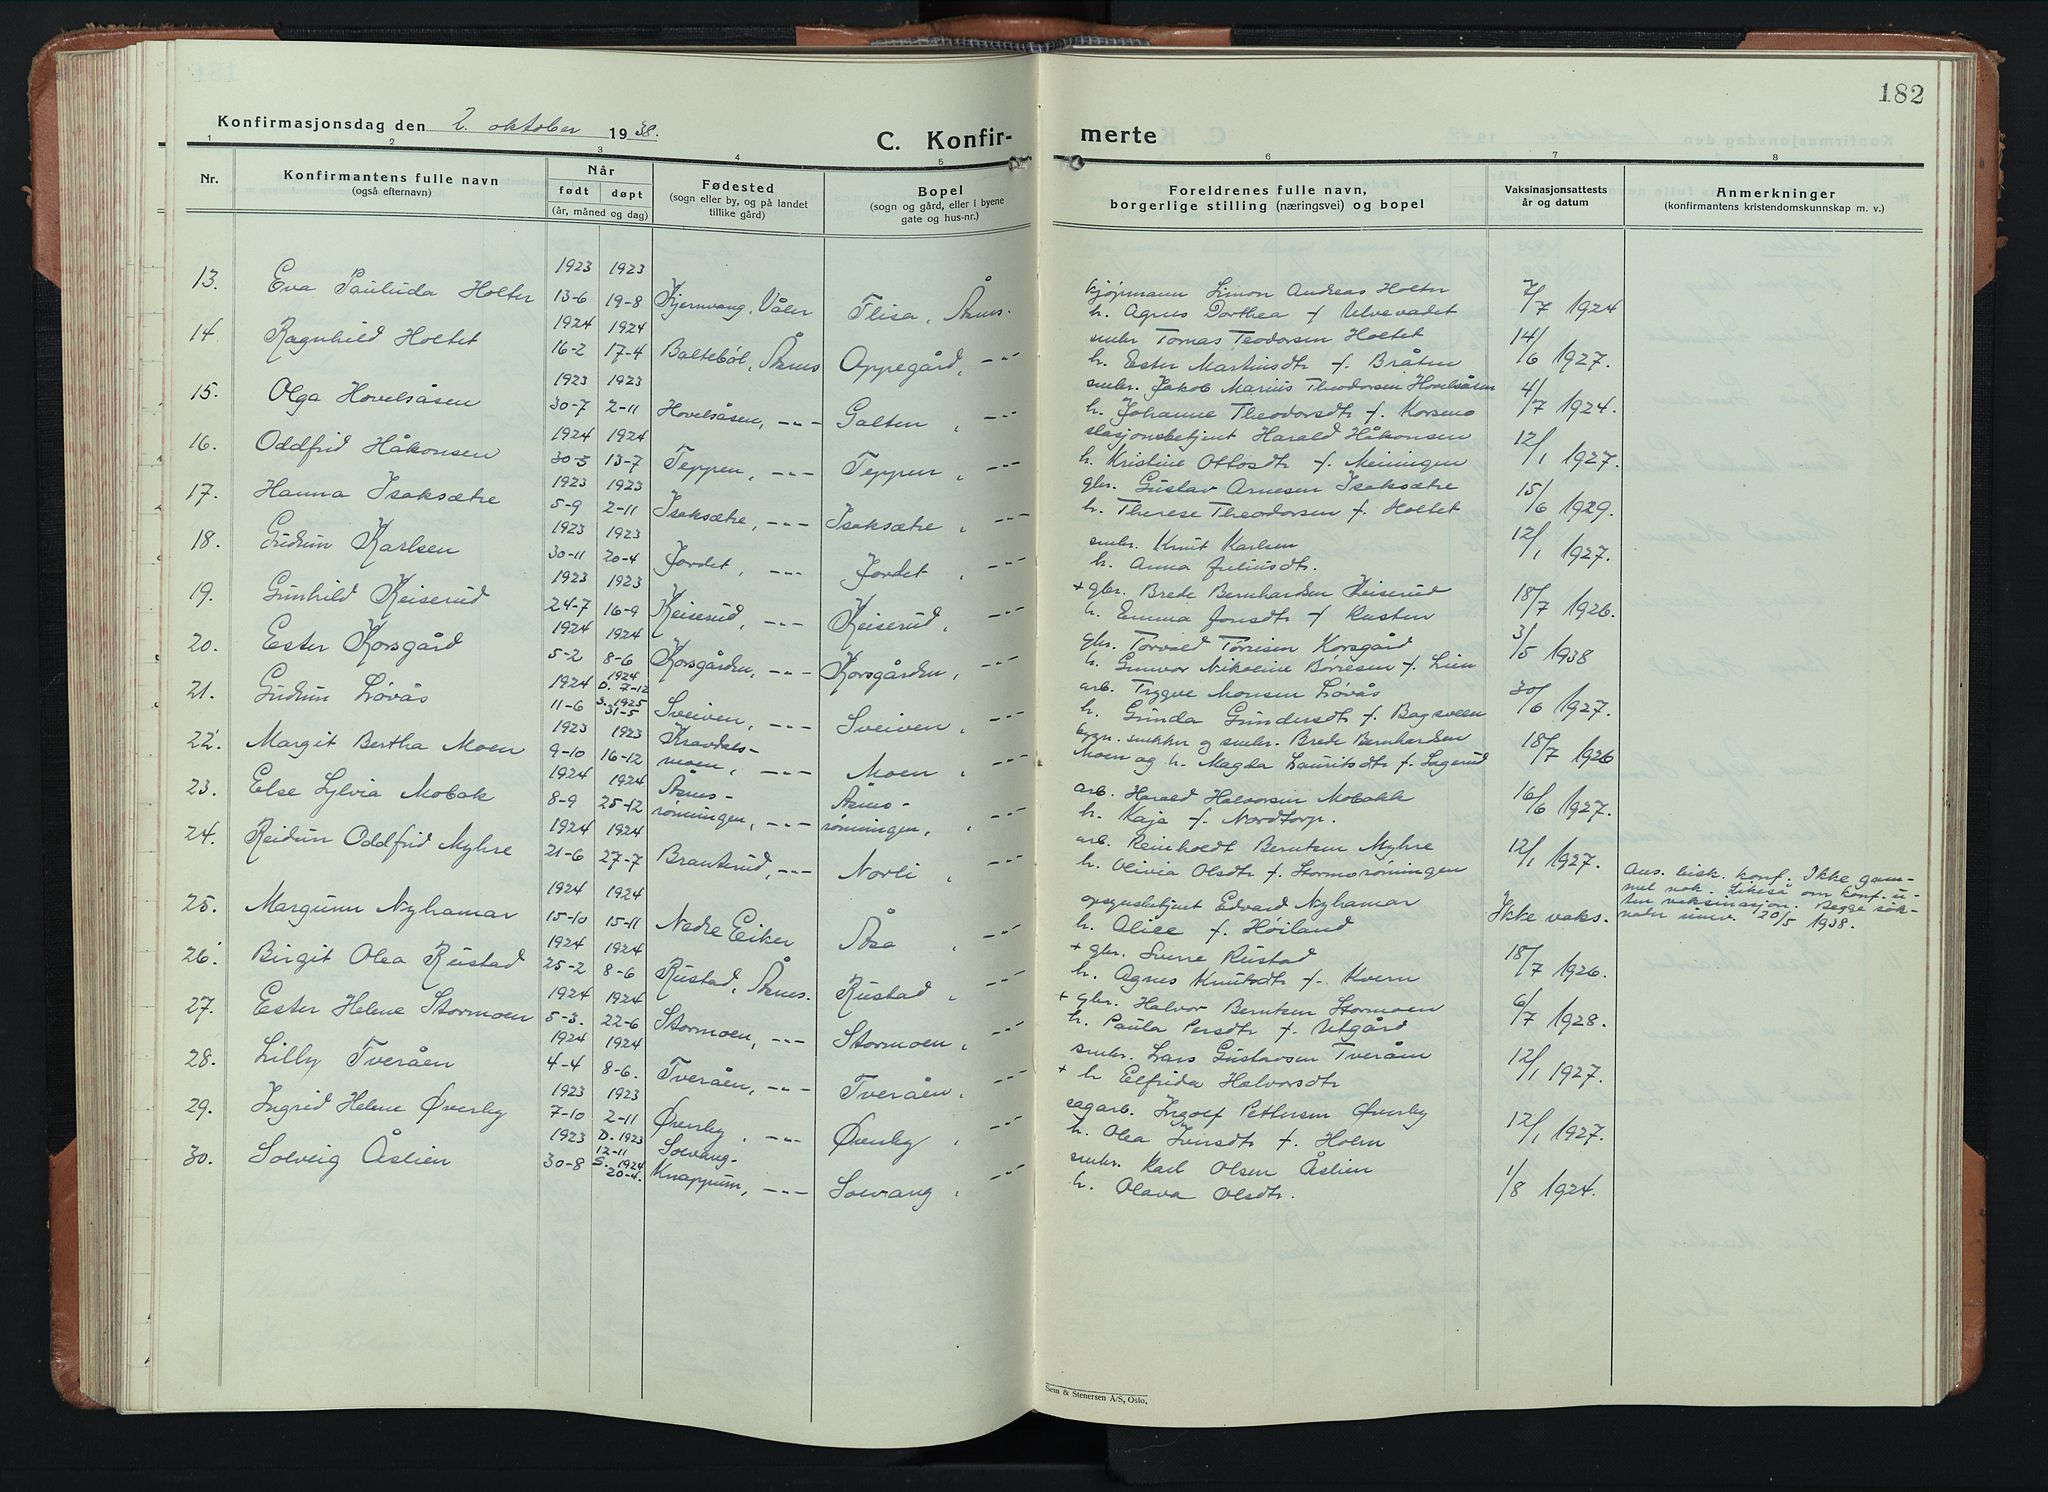 182
Konfirmasjonsdag den 2. oktober 1938.
C. Konfir-
merte
1 2 3 4 5 6 7 8
Nr.
Konfirmantens fulle navn
(også efternavn)
Når
født døpt
(år, måned og dag)
Fødested
(sogn eller by, og på landet
tillike gård)
Bopel
(sogn og gård, eller i byene
gate og hus-nr.)
Foreldrenes fulle navn,
borgerlige stilling (næringsvei) og bopel
Vaksinasjonsattests
år og datum
Anmerkninger
(konfirmantens kristendomskunnskap m. v.)
1923 1923
13. Eva Pauluda Holter 13-6 19-8 Kjernvang, Våler Flisa, Åsnes.
kjøpmann Simon Andreas Holter
h. Agnes Dorthea f. Ulvevadet 7/7 1924
1924 1924
14. Ragnhild Holtet 16-2 17-4 Baltebøl, Åsnes Oppegård, -"-
smbr. Tomas Teodorsen Holtet
h. Ester Martinsdtr f. Bråten 14/6 1927.
1923 1923
15. Olga Hovelsåsen 30-7 2-11 Hovelsåsen, -"- Galten, -"-
smbr. Jakob Marius Theodorsen Hovelsåsen
h. Johanne Theodorsdtr f. Korsmo 4/7 1924.
1924 1924
16. Oddfrid Håkonsen 30-5 13-7 Teppen, -"- Teppen, -"-
stasjonsbetjent Harald Håkonsen
h. Kristine Ottosdtr f. Meiningen 12/1 1927.
1923 1923
17. Hanna Isaksætre 5-9 2-11 Isaksætre, -"- Isaksætre, -"-
gbr. Gustav Arnesen Isaksætre
h. Therese Theodorsen f. Holtet 15/6 1929.
1923 1923
18. Gudrun Karlsen 30-11 20-4 Jordet, -"- Jordet, -"-
smbr. Knut Karlsen
h. Anna Juliusdtr. 12/1 1927.
1923 1923
19. Gunhild Keiserud 24-7 16-9 Keiserud, -"- Keiserud, -"-
+ gbr. Brede Bernhardsen Keiserud
h. Emma Jonsdtr f. Rusten 18/7 1926.
1924 1924
20. Ester Korsgård 5-2 8-6 Korsgården, -"- Korsgården, -"-
gbr. Torvald Torrisen Korsgård
h. Gunvor Nikoline Børresen f. Lien 3/5 1938
1924 1924
D. 7-12
21. Gudrun Løvås 11-6 S. 1925
31-5 Sveiven, -"- Sveiven, -"-
arb. Trygve Monsen Løvås
h. Gunda Gundersdtr f. Bagsveen 30/6 1927.
1923 1923
22. Margit Bertha Moen 9-10 16-12 Kravdels-
moen, -"- Moen, -"-
bygn. snekker og smbr. Brede Bernhardsen
Moen og h. Magda Lauritsdtr f. Lagerud 18/7 1926
1924 1924
23. Else Sylvia Mobak 8-9 25-12 Åsnes-
rønningen, -"- Åsnes-
rønningen, -"-
arb. Harald Halvorsen Mobakk
h. Kaja f. Nordtorp. 16/6 1927.
1924 1924
24. Reidun Oddfrid Myhre 21-6 27-7 Branterud, -"- Norli, -"-
arb. Reinholdt Berntsen Myhre
h. Olivia Olsdtr f. Stormorønningen 12/1 1927.
1924 1924
25. Margunn Nyhamar 15-10 15-11 Nedre Eiker Åsa, -"-
opsynsbetjent Edvard Nyhamar
h. Alice f. Høiland Ikke vaks.
Ans. bisk. konf. Ikke gam-
mel nok. Likeså om konf. u-
ten vaksinasjon. Begge søk-
nader innv. 20/5 1938.
1924 1924
26. Birgit Olea Rustad 25-2 8-6 Rustad, Åsnes. Rustad, -"-
+ gbr. Sverre Rustad
h. Agnes Knutsdtr f. Kvern 18/7 1926.
1924 1924
27. Ester Helene Stormoen 5-3. 22-6 Stormoen, -"- Stormoen, -"-
+ gbr. Halvor Berntsen Stormoen
h. Paula Persdtr f. Utgård 6/7 1928.
1924 1924
28. Lilly Tveråen 4-4 8-6. Tveråen, -"- Tveråen, -"-
smbr. Lars Gustavsen Tveråen
+ h Elfrida Halvorsdtr 12/1 1927.
1923 1923
29. Ingrid Helene Øverby 7-10 2-11 Øverby, -"- Øverby, -"-
sagarb. Ingolf Pettersen Øverby
h. Olea Iversdtr f. Holm 12/1 1927.
1923 D. 1923
12-11
30. Solveig Åslien 30-8 S. 1924
20-4. Solvang-
Knappum, -"- Solvang, -"-
smbr. Karl Olsen Åslien
h. Olava Olsdtr. 1/8 1924.
Sem & Stenersen A/S, Oslo.